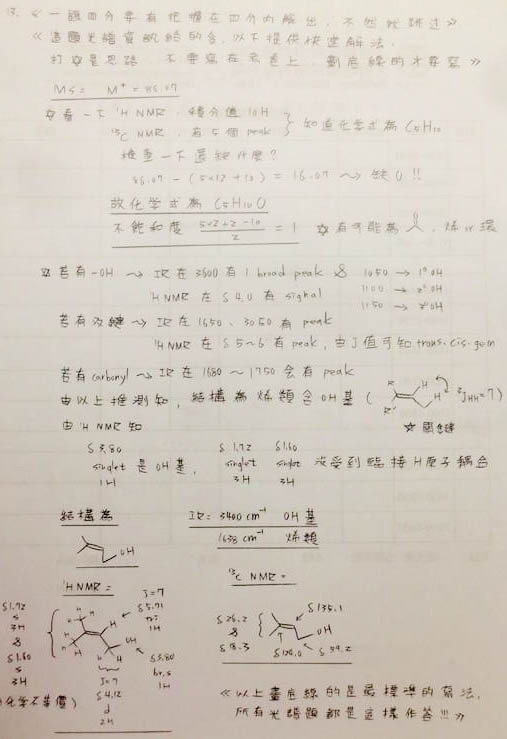 13. 《一題四分要有把握在四分內解出,不然就跳過》
《這題光譜資訊給的全,以下提供快速解法,
打☆是思路,不要寫在考卷上,劃底線的才要寫》
MS = M⁺ = 86.07
☆看一下 ¹H NMR,積分值 10H
¹³C NMR,有5個 peak } 知道化學式為 C5H10
檢查一下還缺什麼?
86.07 - (5×12+10) = 16.07 ~> 缺 O !!
故化學式為 C5H10O
不飽和度 5×2+2-10 / 2 = 1 ☆有可能為 , 烯 or 環
☆ 若有 -OH ~> IR 在 3600 有 1 broad peak & 1050 → 1° OH
¹H NMR 在 δ 4.0 有 signal 1100 → 2° OH
1150 → 3° OH
若有双鍵 ~> IR 在 1650、3050 有 peak
¹H NMR 在 δ 5~6 有 peak, 由 J 值可知 trans. cis. gem
若有 carbonyl ~> IR 在 1680 ~ 1750 会有 peak
由以上推測知, 結構為烯類含 OH 基 ( R R' H H ³JHH = 7 )
☆ 關鍵
由 ¹H NMR 知
δ 3.80 δ 1.72 δ 1.60
singlet 是 OH 基, singlet singlet 沒受到臨接 H 原子耦合
1H 3H 3H
結構為 IR = 3400 cm⁻¹ OH 基
OH 1638 cm⁻¹ 烯類
¹H NMR = ¹³C NMR =
δ 1.72 s 3H & δ 1.60 s 3H
J=7 δ 5.71 1H
OH δ 3.80 br,s 1H
J=7 δ 4.12 d 2H
δ 26.2 & δ 18.3 δ 135.1 OH δ 59.2
化學不等價)
《以上畫底線的是最標準的寫法,
所有光譜題都是這樣作答!!!》